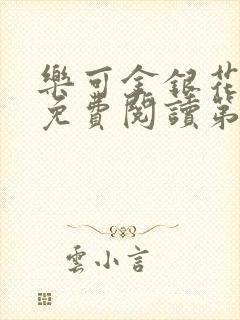 樂可金銀花
免費閱讀第
雲小言